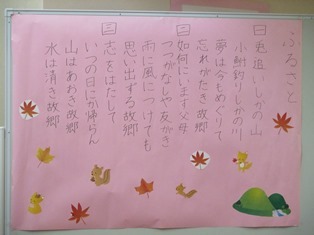 ふるさと
一 兎追いしかの山
小鮒釣りしかの川
夢は今もめぐりて
忘れがたき故郷
二 如何にいます父母
つつがなしや友がき
雨に風につけても
思い出ずる故郷
三 志をはたして
いつの日にか帰らん
山はあおき故郷
水は清き故郷